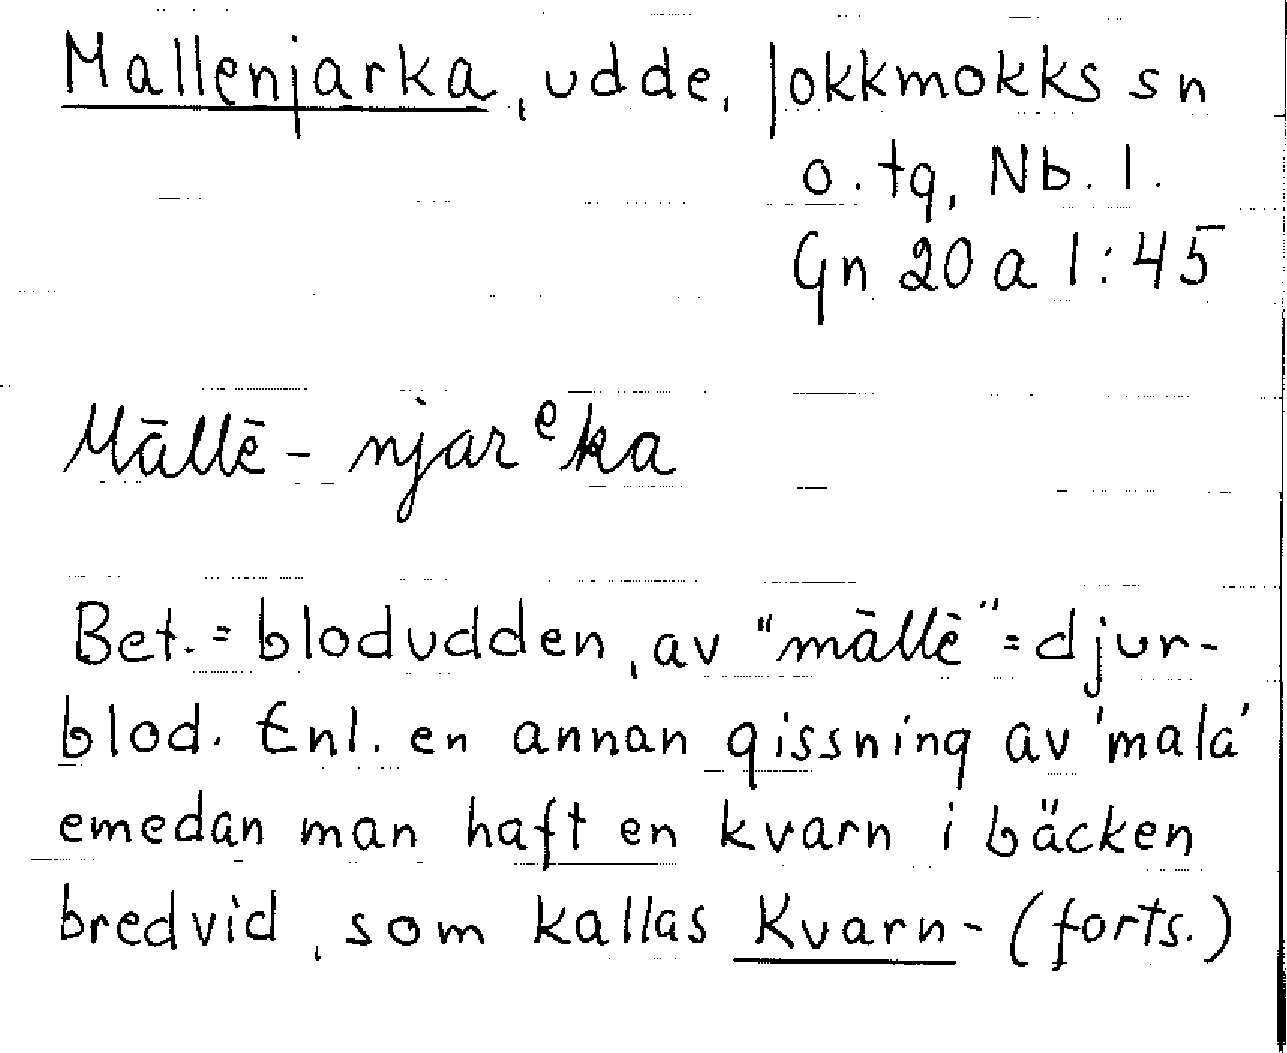 Mallenjarka, udde, Jokkmokks sn
o. tg, Nb. l.
Gn 20 a 1:45
Māllē - njarᵉka
Bet. = blodudden, av "māllē" = djur-
blod. Enl. en annan gissning av 'mala'
emedan man haft en kvarn i bäcken
bredvid, som kallas Kvarn- (forts.)